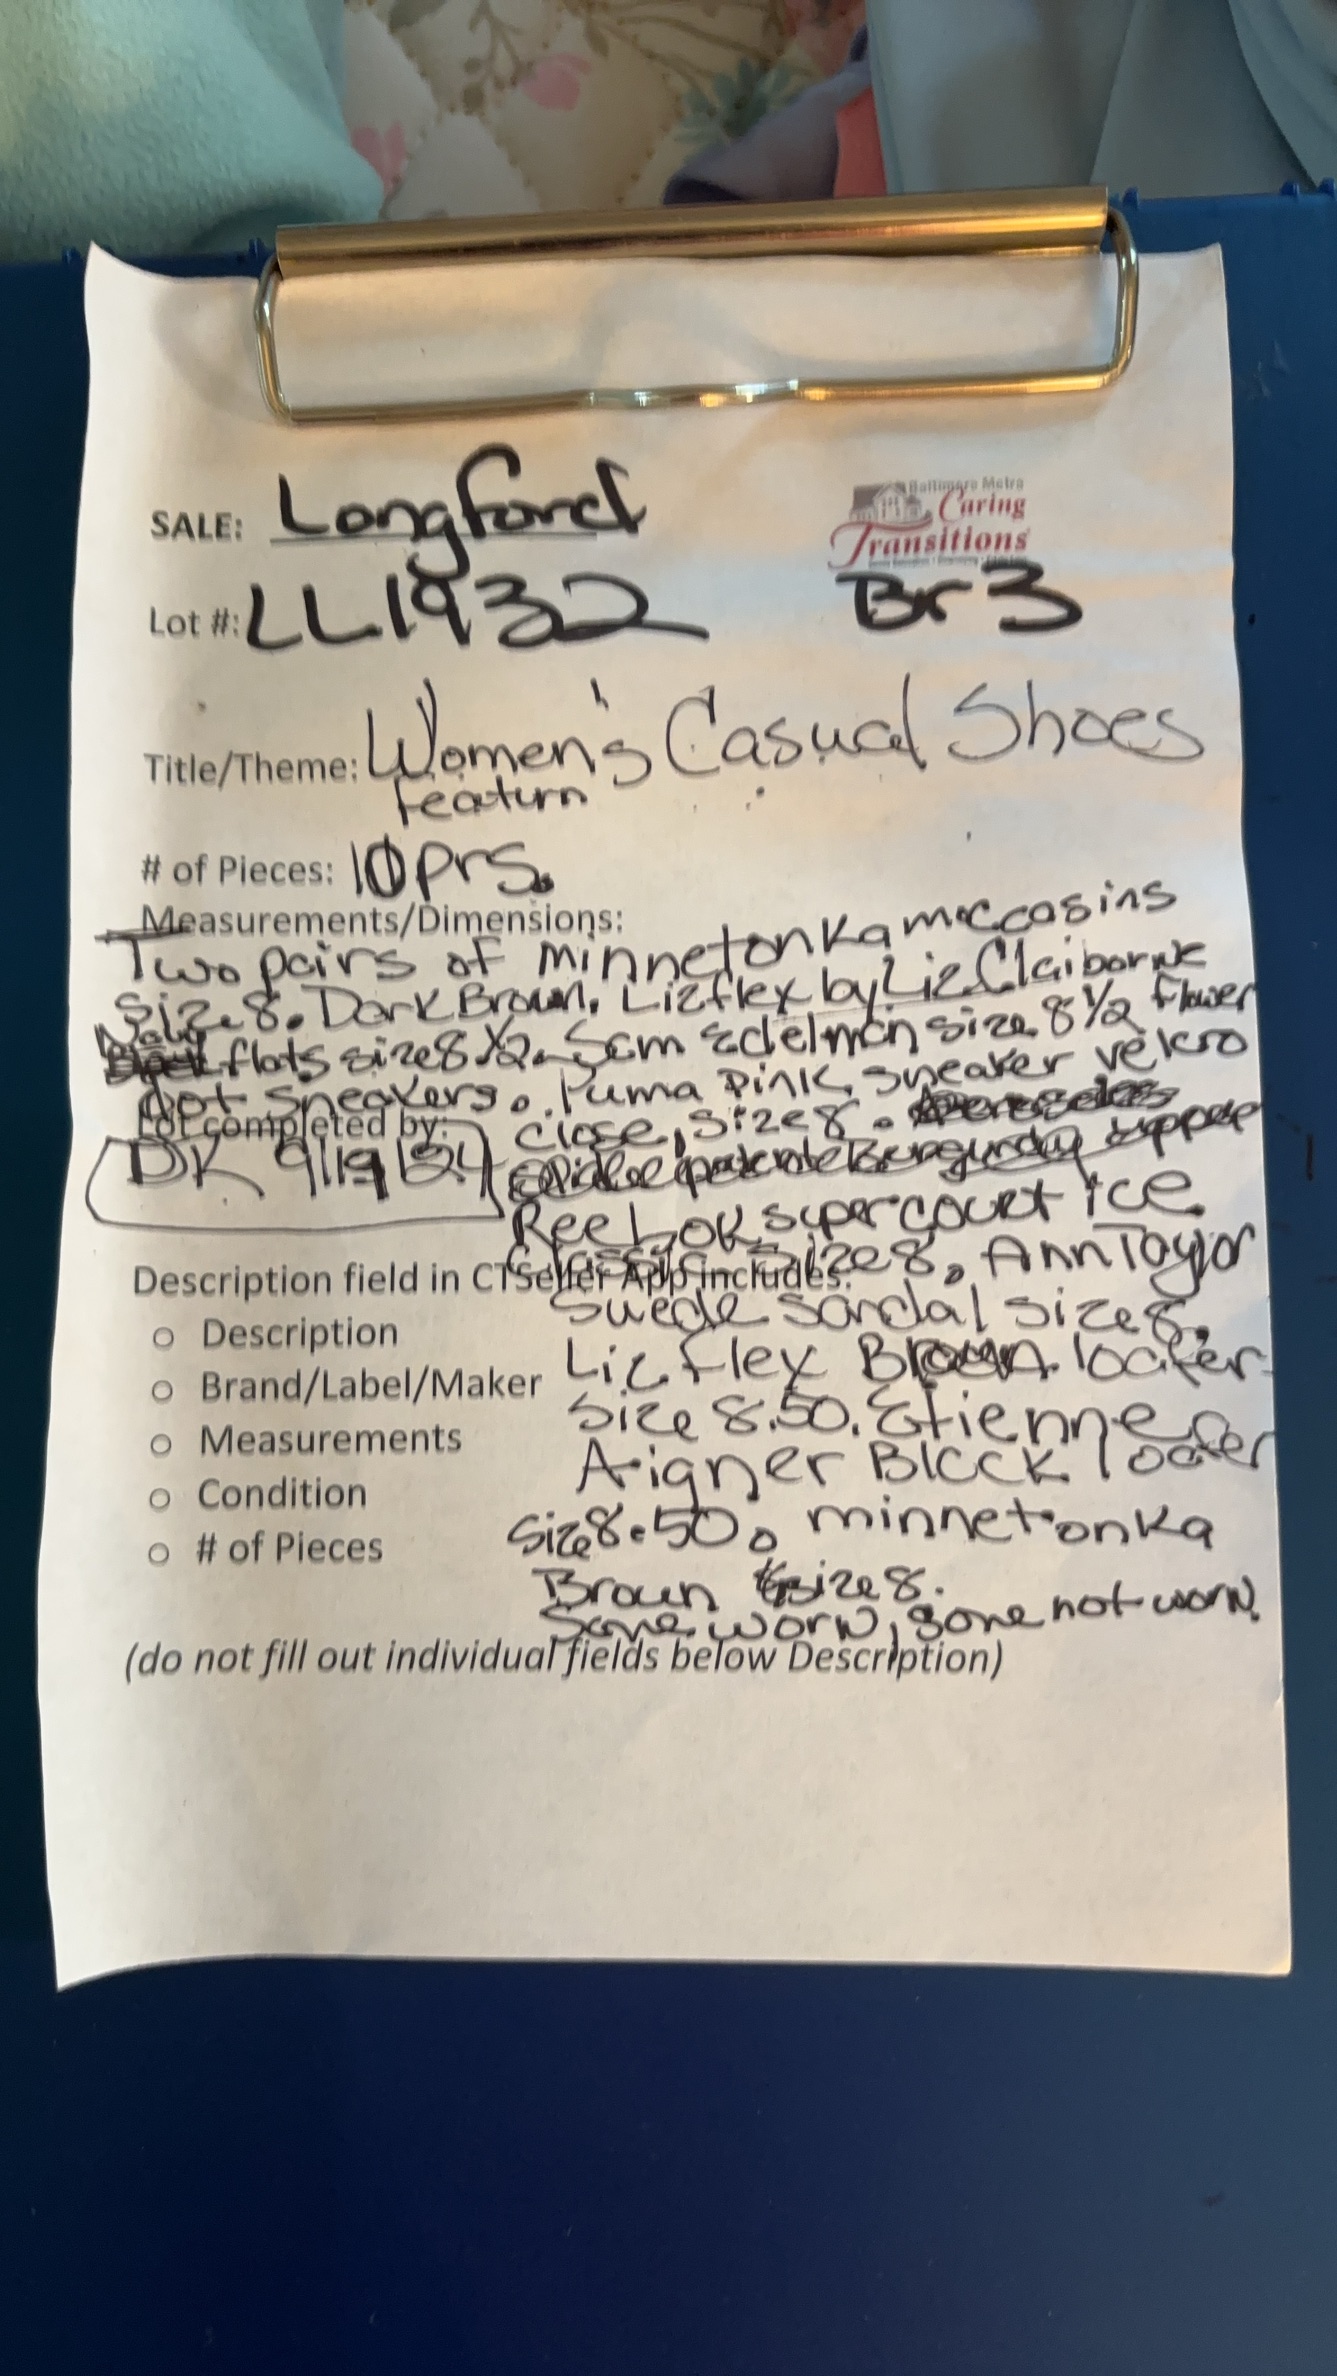 Baltimore Metro
Caring
Transitions
SALE: Longford
Lot #: LL1932 Br3
Title/Theme: Women's Casual Shoes
featurn
# of Pieces: 10 prs.
Measurements/Dimensions:
Two pairs of minnetonka moccasins
Size 8. Dark Brown. Lizflex by Liz Claiborne
Navy flats size 8 1/2. Sam Edelman size 8 1/2 flower
dot sneakers. Puma Pink sneaker velcro
Lot completed by: close, size 8.
DK 9/19/24
Reebok supercourt ice
size 8. Ann Taylor
Description field in CTSeller App includes:
Suede sandal size 8.
o Description
Liz flex Brown loafer
o Brand/Label/Maker
Size 8.50. Etienne
o Measurements
Aigner Black loafer
o Condition
Size 8.50. minnetonka
o # of Pieces
Brown size 8.
Some worn, some not worn.
(do not fill out individual fields below Description)